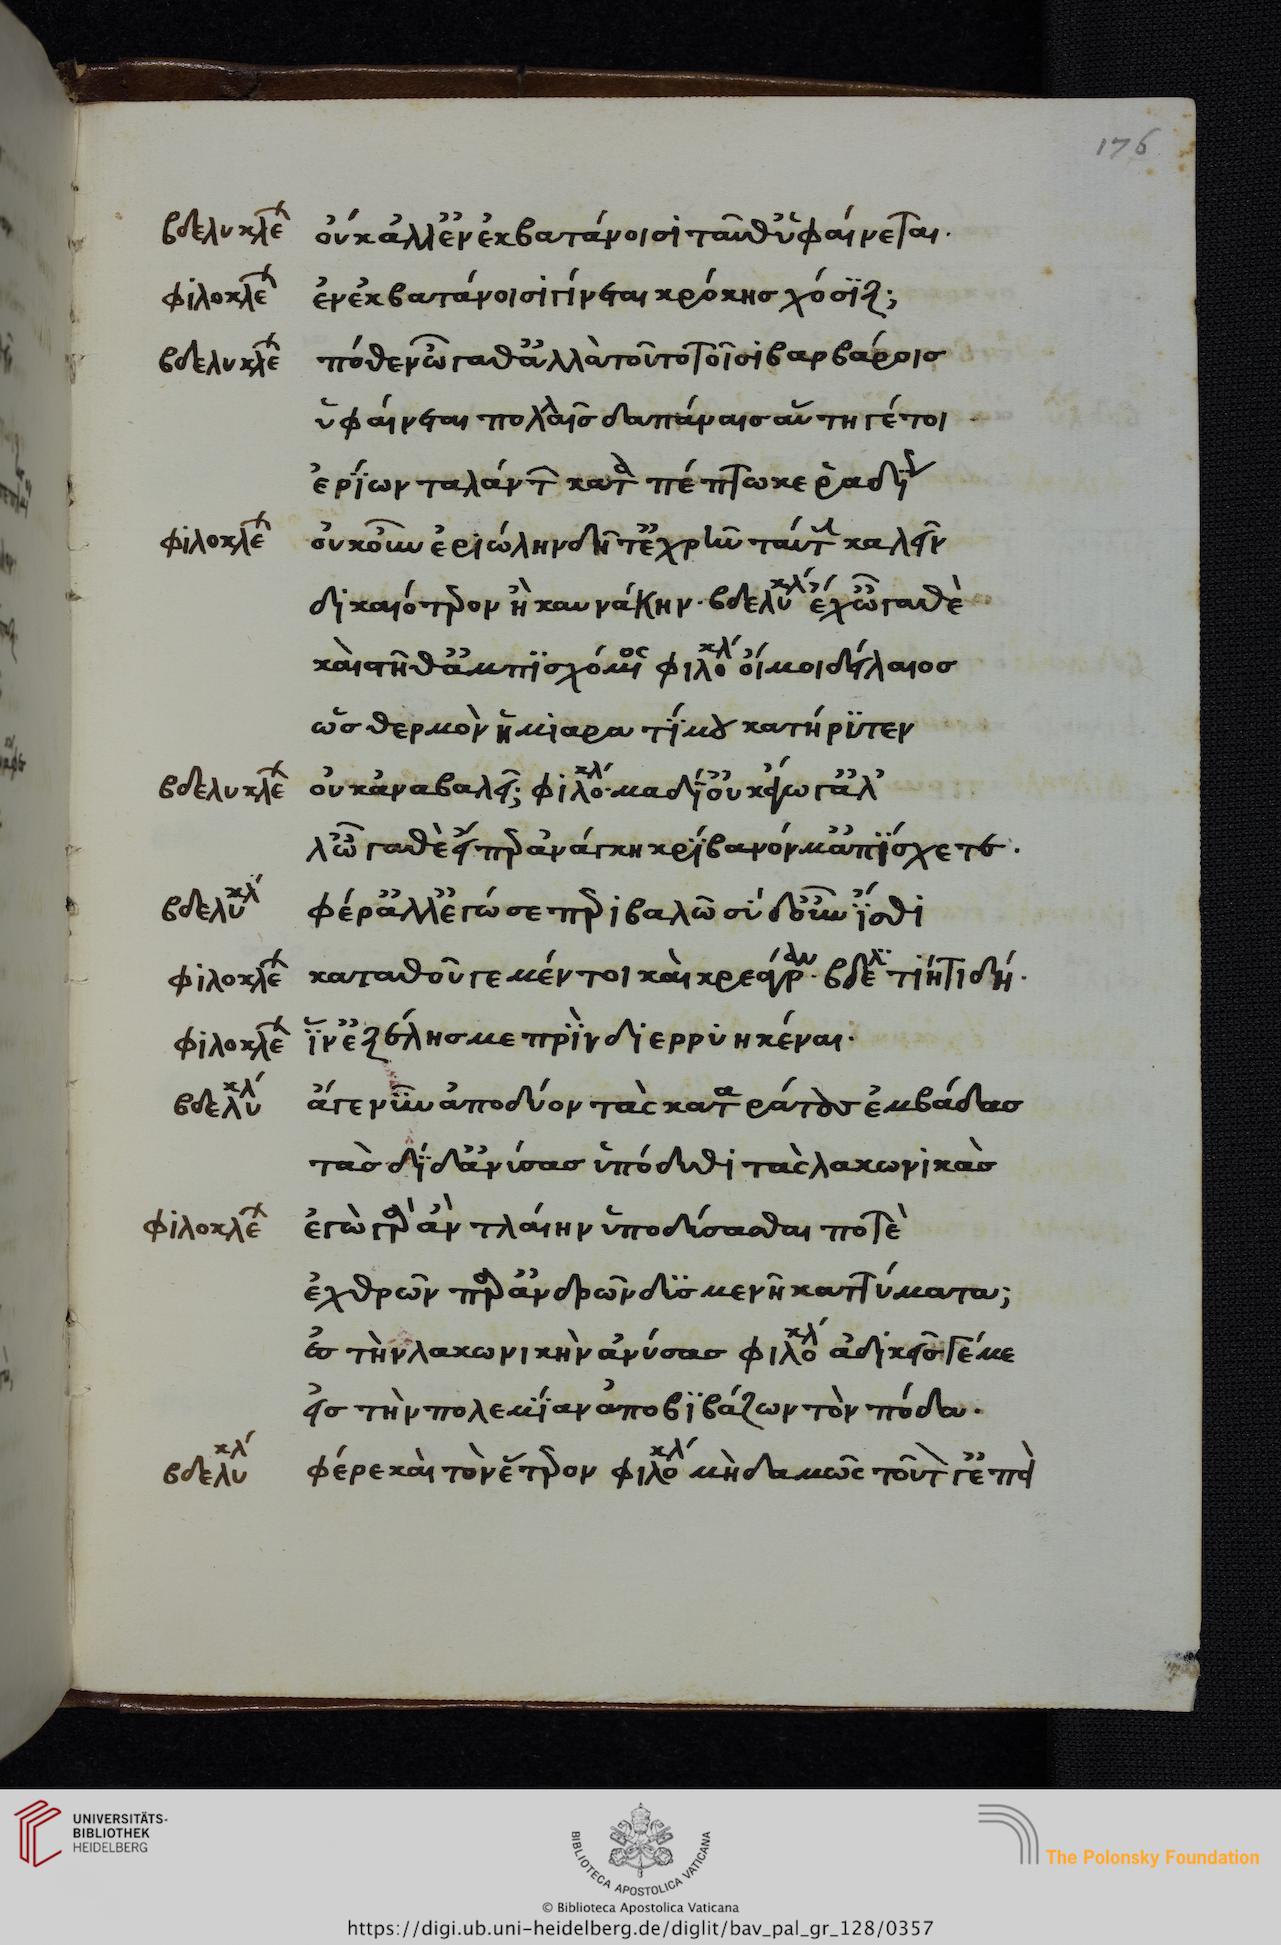 176
βδελυκλε οὐκ ἀλλ' ἐν ἐκβατάνοισι ταῦθ' ὑφαίνεται.
φιλοκλε ἐν ἐκβατάνοισι γίνεται κρόκης χόλιξ;
βδελυκλε πόθεν ὦγαθ' ἀλλὰ τοῦτο τοῖσι βαρβάροις
ὑφαίνεται πολλαῖς δαπάναις αὕτη γέ τοι
ἐρίων ταλάντ κατα πέπτωκε ῥαδί
φιλοκλε οὐκοῦν ἐριώλην δῆτ' ἐχρῆν ταύτ καλεῖν
δικαιότερον ἢ καυνάκην. βδελυκλ ἔχ' ὦγαθὲ
καὶ στῆθ' ἀμπισχόμενος φιλοκλ οἴμοι δείλαιος
ὡς θερμὸν ἡ μιαρα τί μου κατήρυγεν
βδελυκλε οὐκ ἀναβαλεῖ; φιλοκλ. μα δί' οὐκ ἔγωγ' ἀλ
λ' ὦγαθὲ εἴπερ ἀνάγκη κρίβανόν μ' ἀπίσχετε.
βδελυκλ φέρ' ἀλλ' ἐγώ σε περιβαλῶ σύ δ' οὖν ἴθι
φιλοκλε καταθοῦ γε μέντοι καὶ κρεάγραν. βδελ τί ή τι δή.
φιλοκλε ἵν' ἐξέλης με πρὶν διερρυηκέναι.
βδελυκλ ἄγε νῦν ἀποδύου τὰς καταράτους ἐμβάδας
τὰς δὶ δ' ἀνύσας ὑπόδυθι τὰς λακωνικὰς
φιλοκλε ἐγὼ γὰρ ἂν τλαίην ὑποδύσασθαι ποτὲ
ἐχθρῶν παρ' ἀνδρῶν δυσμενῆ καττύματα;
ἐς τὴν λακωνικὴν ἀνύσας φιλοκλ ἀδικεῖς γέ με
εἰς τὴν πολεμίαν ἀποβιβάζων τὸν πόδα.
βδελυκλ φέρε καὶ τὸν ἕτερον φιλοκλ μὴδαμῶς τοῦτ γ' ἐπεὶ
UNIVERSITÄTS-
BIBLIOTHEK
HEIDELBERG
BIBLIOTECA APOSTOLICA VATICANA
The Polonsky Foundation
© Biblioteca Apostolica Vaticana
https://digi.ub.uni-heidelberg.de/diglit/bav_pal_gr_128/0357